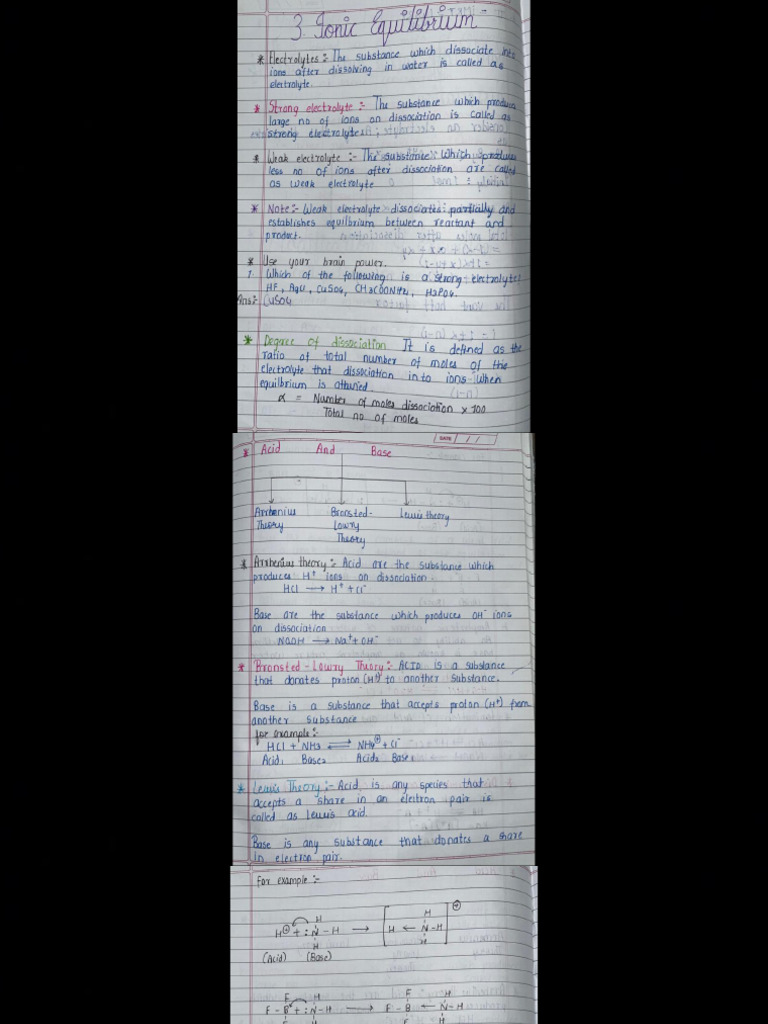 3. Ionic Equilibrium
* Electrolytes :- The substance which dissociate into
ions after dissolving in water is called as
electrolyte.
* Strong electrolyte :- The substance which produces
large no of ions on dissociation is called as
strong electrolyte.
* Weak electrolyte :- The substance which produces
less no of ions after dissociation are called
as weak electrolyte
* Note :- Weak electrolyte dissociates partially and
establishes equilibrium between reactant and
product.
* Use your brain power.
1. Which of the following is a strong electrolyte?
HF, AgCl, CuSO4, CH3COONH4, H3PO4.
Ans:- CuSO4
* Degree of dissociation It is defined as the
ratio of total number of moles of the
electrolyte that dissociation in to ions when
equilibrium is attained.
α = Number of moles dissociation × 100
Total no of moles
DATE / /
* Acid And Base
Arrhenius Bronsted- Lewis theory
Theory Lowry
Theory
* Arrhenius theory :- Acid are the substance which
produces H+ ions on dissociation.
HCl ⟶ H+ + Cl-
Base are the substance which produces OH- ions
on dissociation
NaOH ⟶ Na+ + OH-
* Bronsted - Lowry Theory :- Acid is a substance
that donates proton (H+) to another substance.
Base is a substance that accepts proton (H+) from
another substance
for example :-
HCl + NH3 ⇌ NH4⊕ + Cl-
Acid1 Base2 Acid2 Base1
* Lewis Theory :- Acid is any species that
accepts a share in an electron pair is
called as lewis acid.
Base is any substance that donates a share
in electron pair.
For example :-
H H ⊕
H⊕ + :N-H ⟶ [H ← N-H]
H H
(Acid) (Base)
F H F H
F-B + :N-H ⟶ F-B ← N-H
F H F H